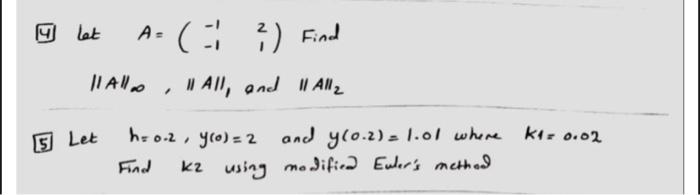 4 Let A = ( -1 2 ) Find
-1 1
||A||∞ , ||A||₁ and ||A||₂
5 Let h=0.2 , y(0)=2 and y(0.2)=1.01 where k1=0.02
Find k2 using modified Euler's method